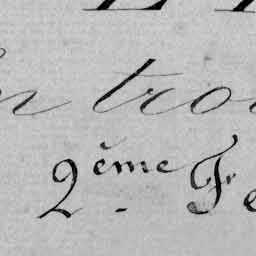 n tro
2ème. Fe